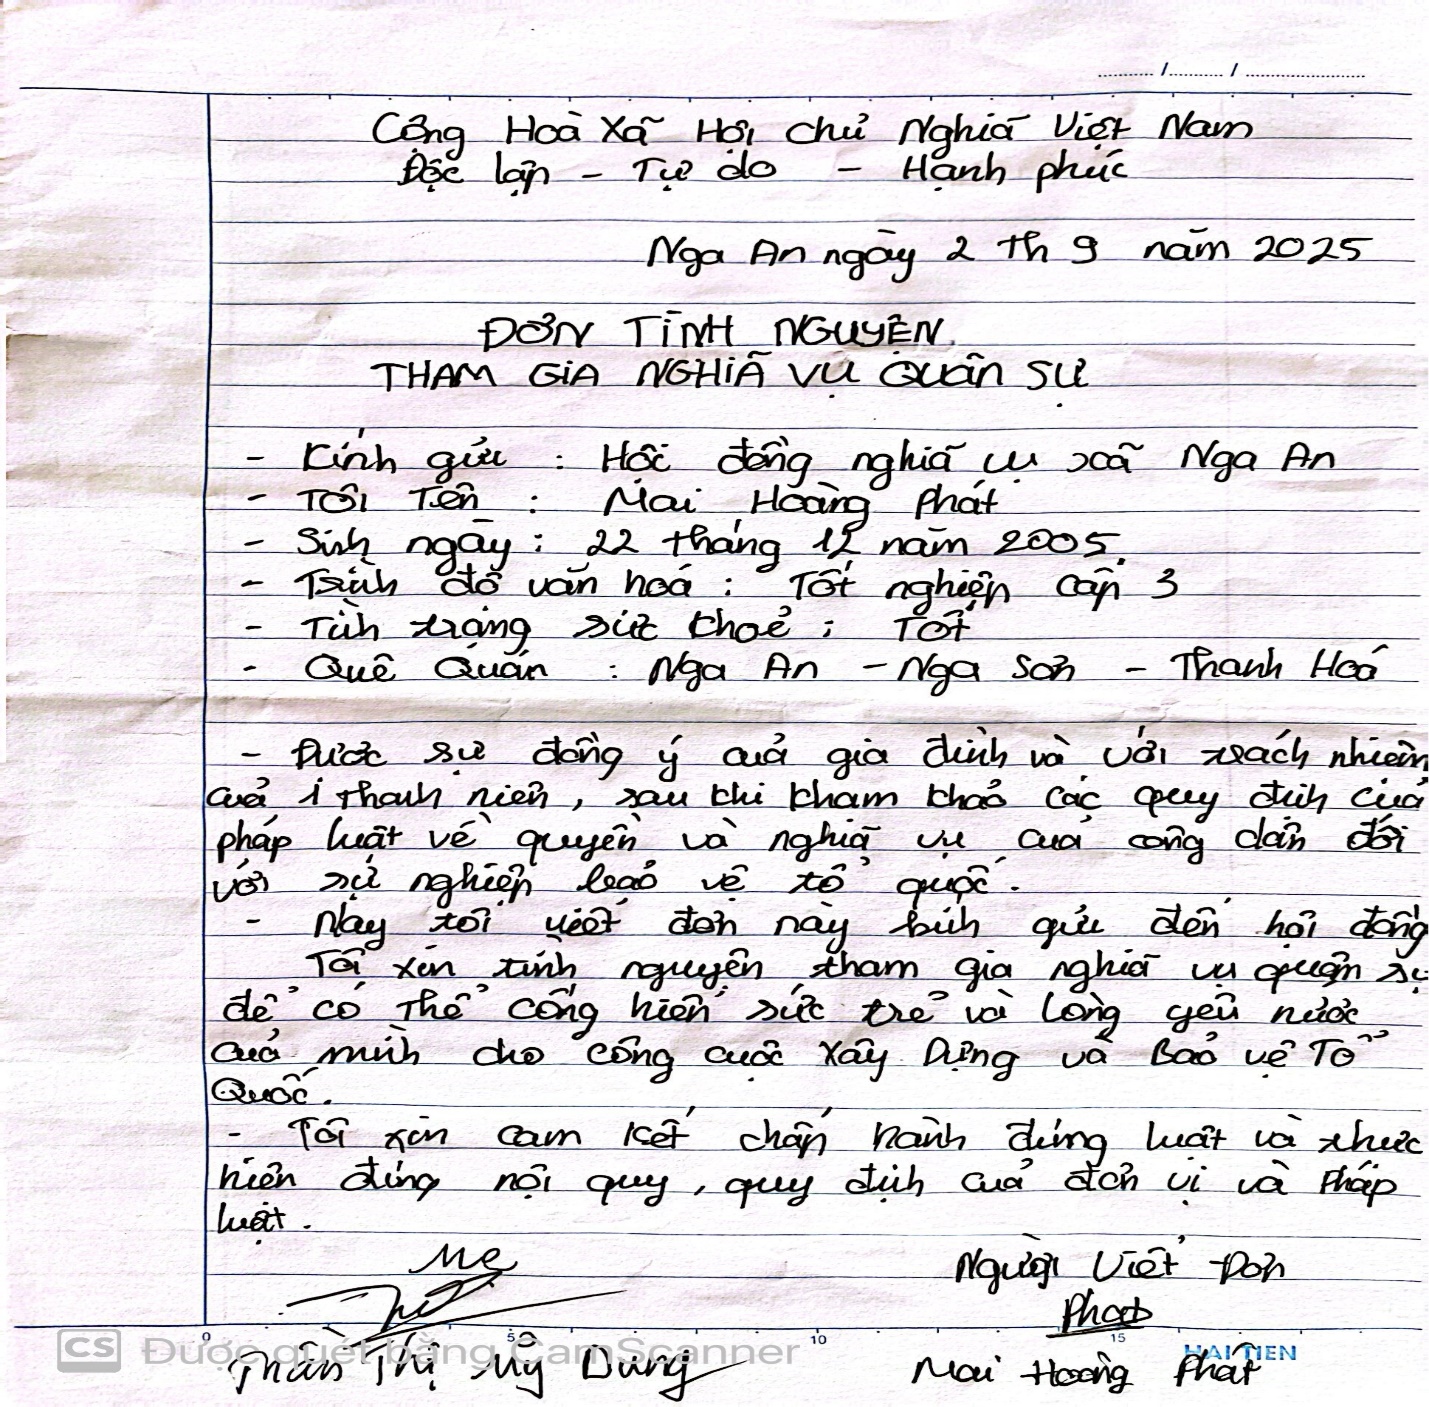 ............ / ............ / ........................
Cộng Hoà Xã Hội Chủ Nghĩa Việt Nam
Độc lập - Tự do - Hạnh phúc
Nga An ngày 2 Th 9 năm 2025
ĐƠN TÌNH NGUYỆN
THAM GIA NGHĨA VỤ QUÂN SỰ
- Kính gửi : Hội đồng nghĩa vụ xã Nga An
- Tôi Tên : Mai Hoàng Phát
- Sinh ngày : 22 tháng 12 năm 2005.
- Trình độ văn hoá : Tốt nghiệp cấp 3
- Tình trạng sức khoẻ : Tốt
- Quê Quán : Nga An - Nga Sơn - Thanh Hoá
- Được sự đồng ý của gia đình và với trách nhiệm
của 1 thanh niên, sau khi tham khảo các quy định của
pháp luật về quyền và nghĩa vụ của công dân đối
với sự nghiệp bảo vệ tổ quốc.
- Nay tôi viết đơn này kính gửi đến hội đồng
Tôi xin tình nguyện tham gia nghĩa vụ quân sự
để có thể cống hiến sức trẻ và lòng yêu nước
của mình cho công cuộc Xây Dựng và Bảo vệ Tổ
Quốc.
- Tôi xin cam kết chấp hành đúng luật và thực
hiện đúng nội quy, quy định của đơn vị và Pháp
luật.
Mẹ
Người Viết Đơn
Phát
CS Được quét bằng CamScanner
0 5 10 15
HẢI TIẾN
Trần Thị Mỹ Dung
Mai Hoàng Phát